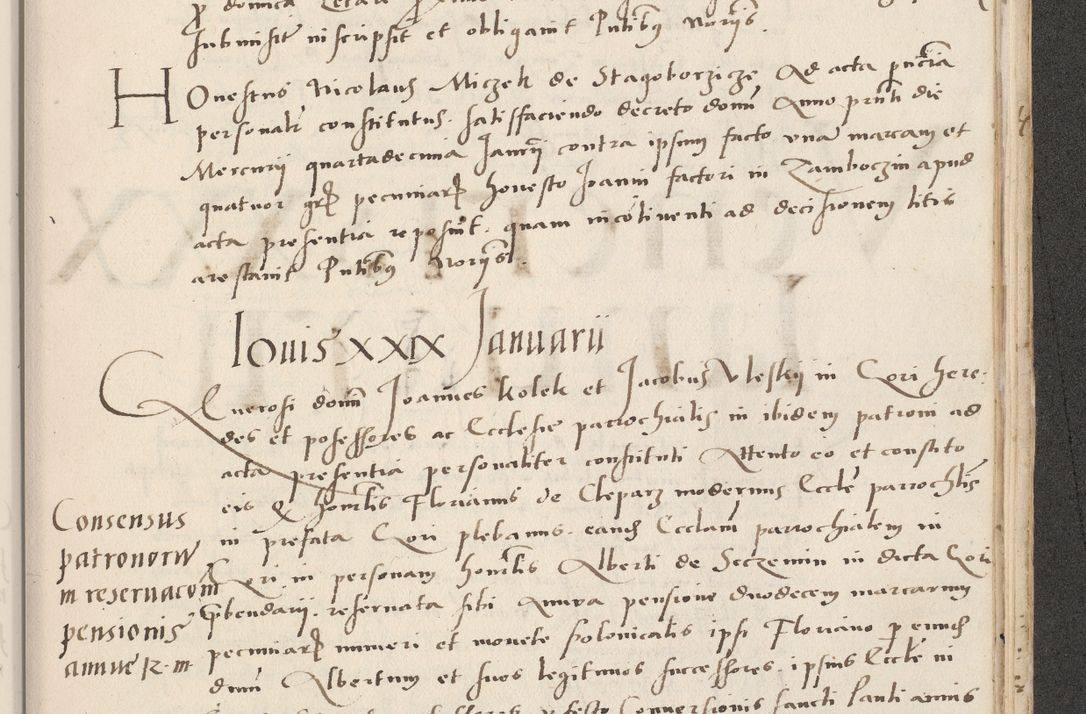 submisit inscripsit et obligavit Pntibus Norijs
Honestus Nicolaus Miczek de Stagoborzicze Ad acta pntia
personalr constitutus. satisfaciendo decreto domi Anno prnti die
Mercurij quartadecima Janrij contra ipsum facto una marcam et
quatuor grs pecuniarz honesto Joanni factori in Zamboczin apud
acta presentia reposuit. quam incotinenti ad decisionem litis
arestavit Pntibus Norijs.
Iouis XXIX Januarii
Generosi domi Joannes Kolek et Jacobus Vleskij in Gori here-
des et possessores ac Ecclesie parrochialis in ibidem patroni ad
acta presentia personaliter constituti Attento eo et constito
eis Q honrlis Florianus de Cleparz modernus Eccle parrochlis
in prefata Gori plebanus. eandem Ecclam parrochialem in
Gori in personam honrlis Alberti de Seczemin in dicta Gori
prebendarij. reservata sibi Annua pensione duodecem marcarum
pecuniarz numeri et monete polonicalis ipsi Floriano per eundem
dnum Albertum et suos legitimos successores. ipsius Eccle in
festo Conversionis sancti Pauli annis
Consensus
patronorum
in reservacom
pensionis
annue 12 m